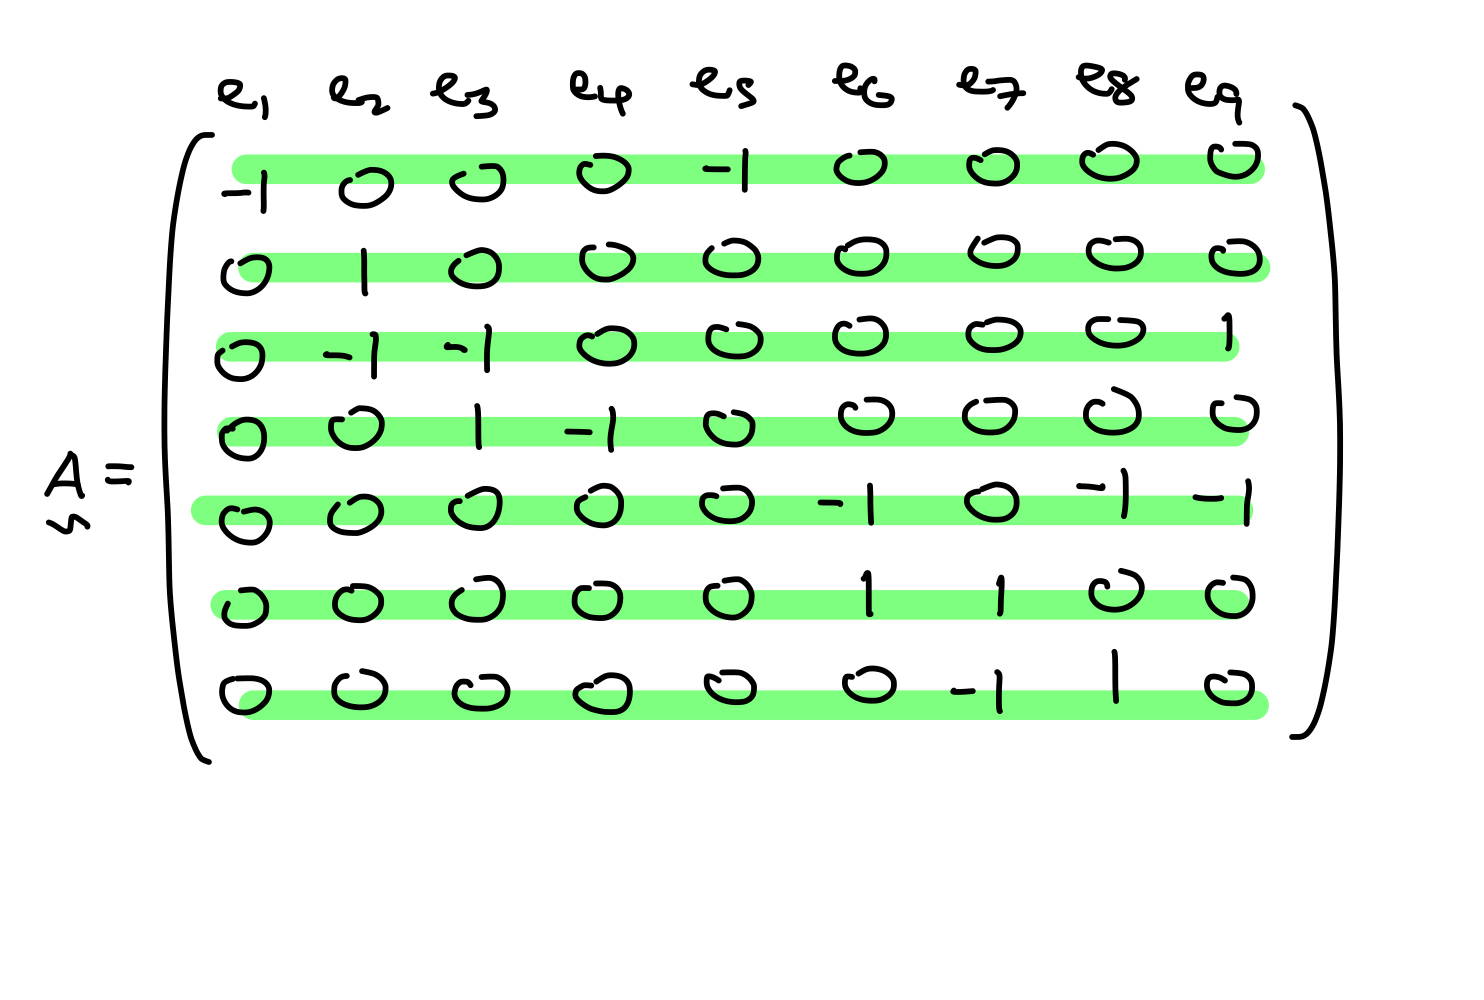 e1 e2 e3 e4 e5 e6 e7 e8 e9
-1 0 0 0 -1 0 0 0 0
0 1 0 0 0 0 0 0 0
0 -1 -1 0 0 0 0 0 1
0 0 1 -1 0 0 0 0 0
A =
0 0 0 0 0 -1 0 -1 -1
0 0 0 0 0 1 1 0 0
0 0 0 0 0 0 -1 1 0